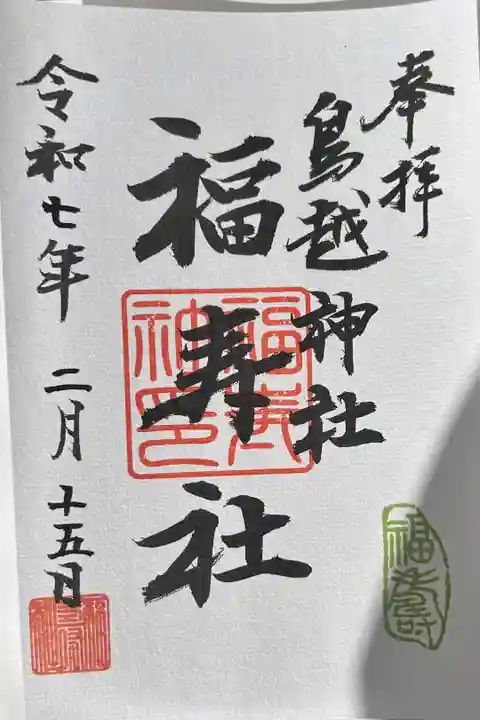 奉拝
鳥越神社
福寿社
令和七年 二月 十五日
福寿
神印
福寿